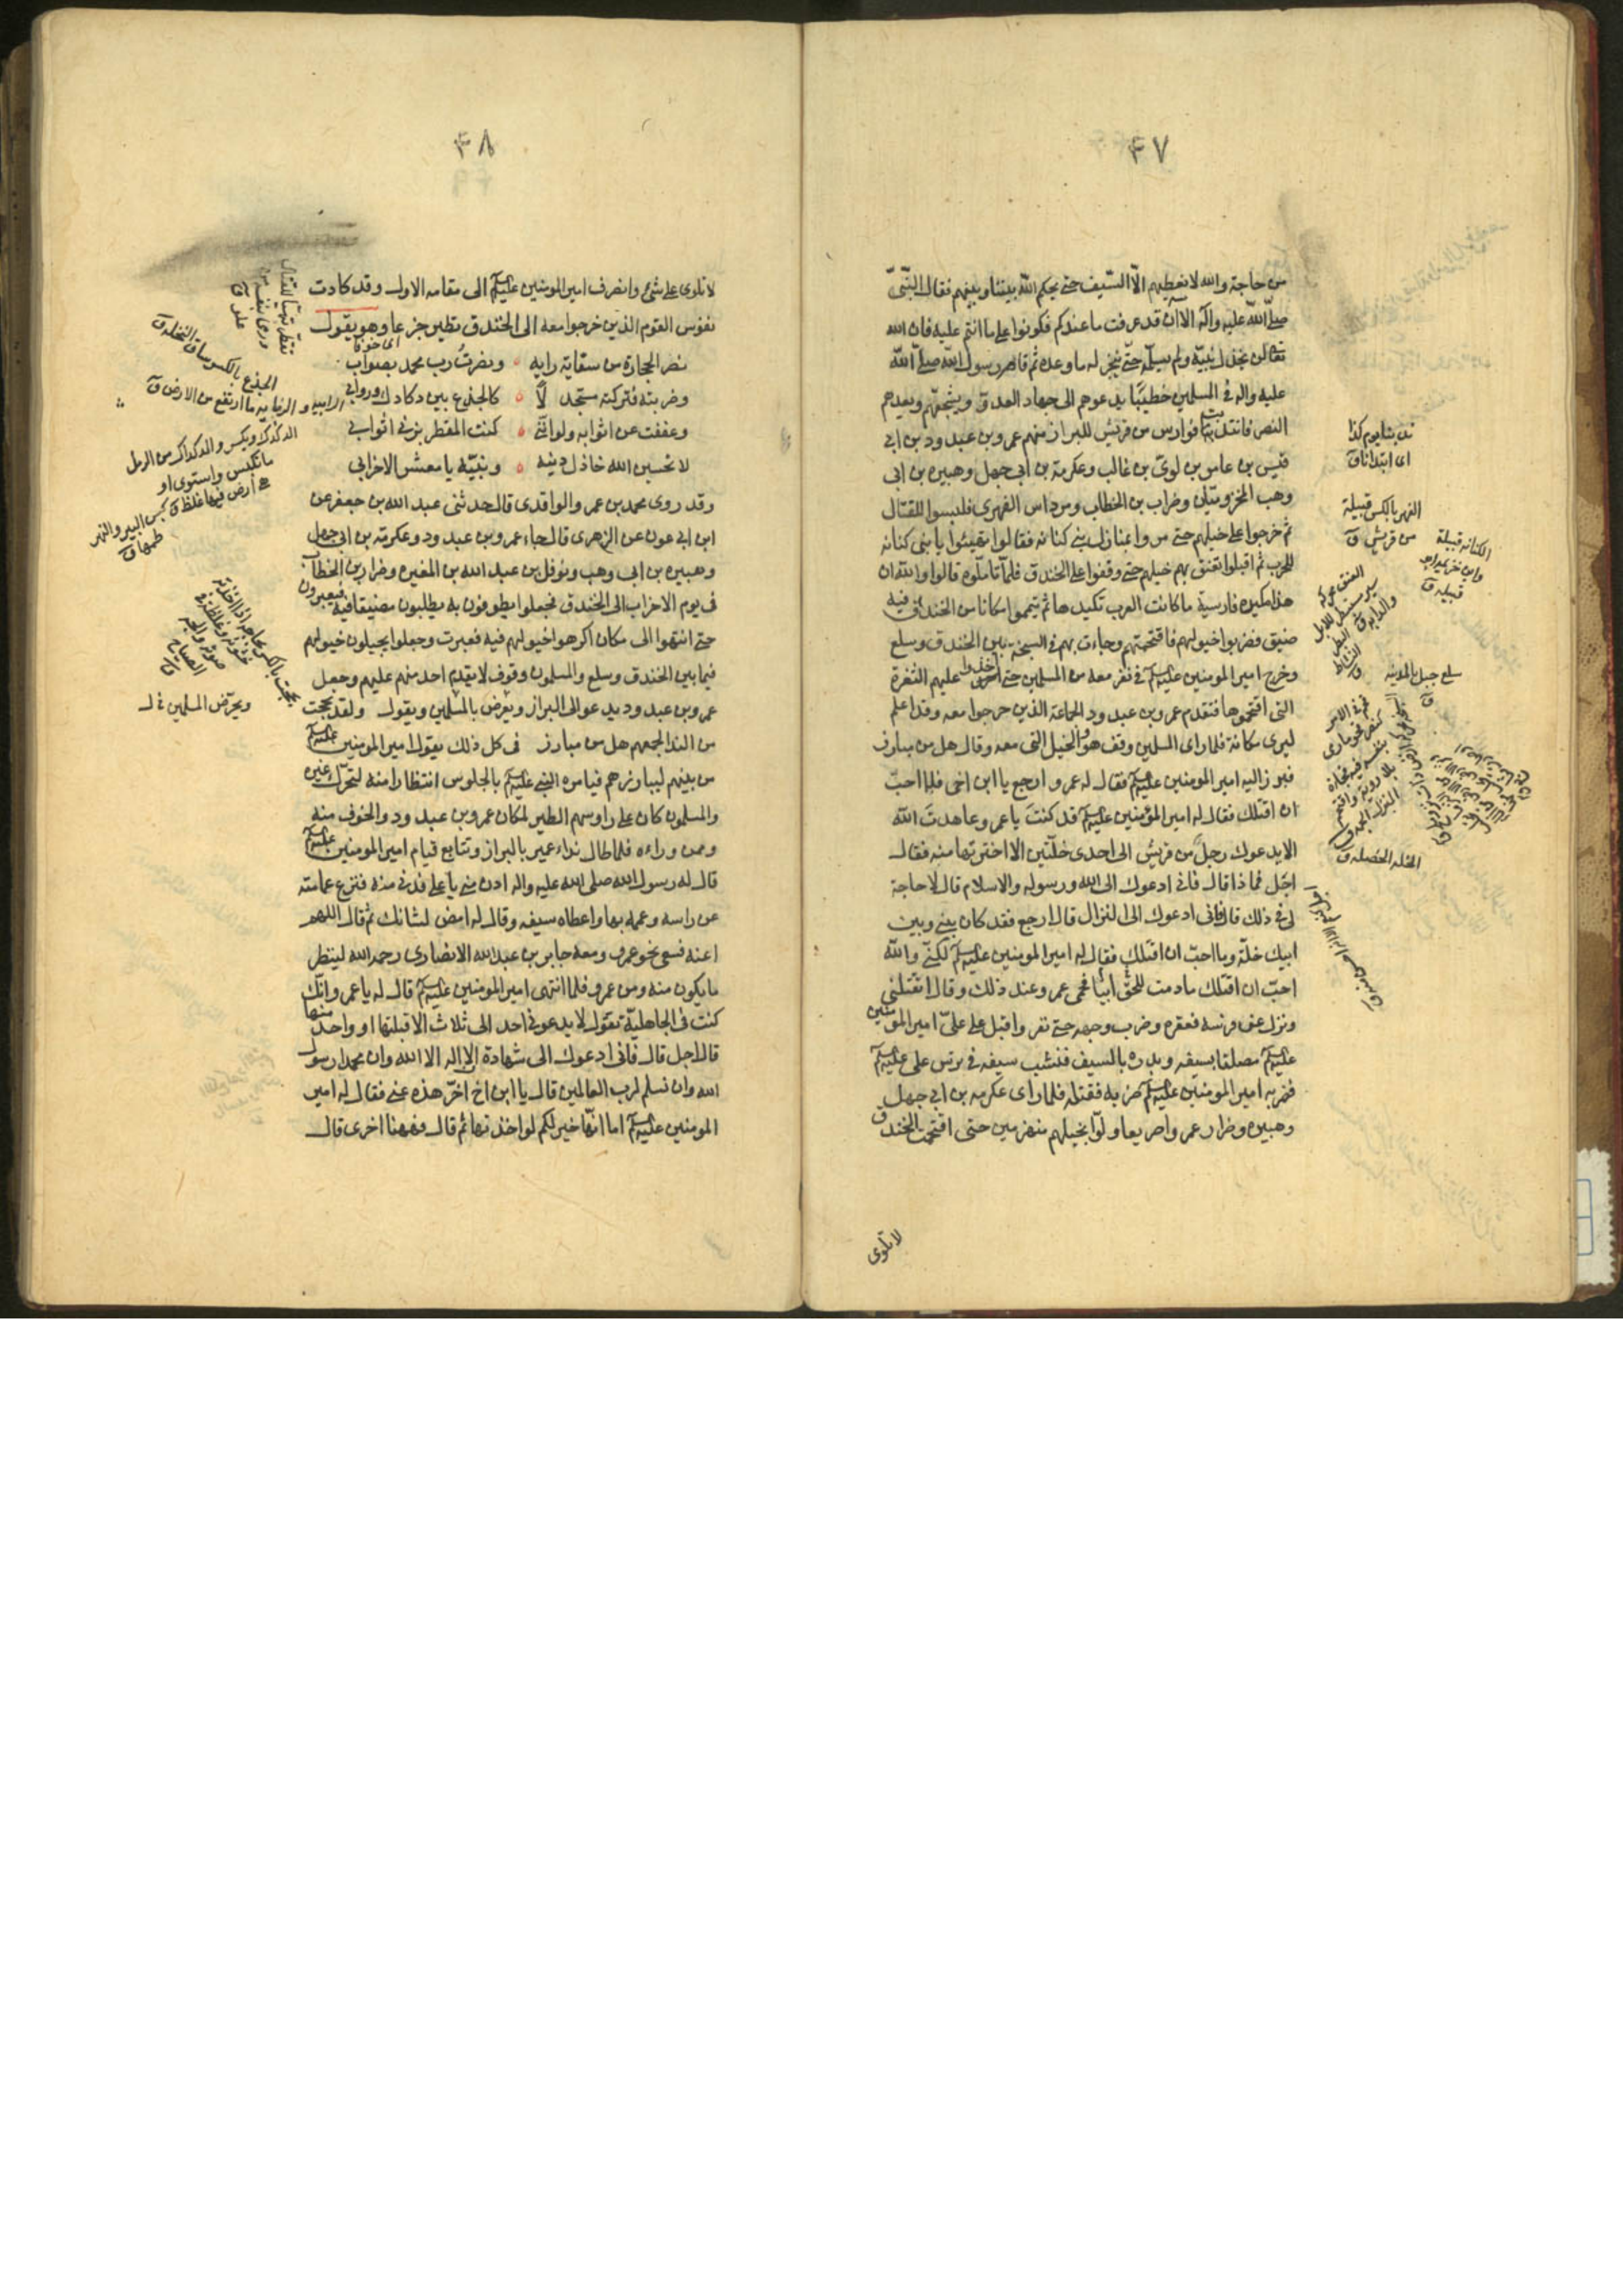 ۴۷
من حاجة والله لا نعطيهم الّا السّيف حتى يحكم اللّه بيننا وبينهم فقال النّبيّ
صلّى اللّه عليه وآله الآن قد عرفت ما عندكم فكونوا على ما انتم عليه فان الله
تعالى لن يخذل نبيّه ولم يسلّمه حتّى ينجز له ما وعده ثم قام رسول اللّه صلّى اللّه
عليه واله في المسلمين خطيبًا يدعوهم الى جهاد العدوّ ويشجعهم ويعدهم
النصر فانتدبت فوارس من قريش للبراز منهم عمرو بن عبد ود بن ابى
قيس بن عامر بن لوىّ بن غالب وعكرمة بن ابى جهل وهبيره بن ابى
وهب المخزوميّان وضرار بن الخطاب ومرداس الفهرى فلبسوا للقتال
ثم خرجوا على خيلهم حتى مروا بمنازل بنى كنانه فقالوا تهيئوا يا بنى كنانه
للحرب ثم اقبلوا تعنق بهم خيلهم حتى وقفوا على الخندق فلمّا تأملّوه قالوا والله ان
هذا مكيده فارسية ما كانت العرب تكيدها ثم تيمموا مكانا من الخندق فيه
ضيق فضربوا خيولهم فاقتحمتهم وجاءت بهم فى السبخة بين الخندق وسلع
وخرج امير المومنين عليه السلم فى نفر معه من المسلمين حتى اخذوا عليهم الثغرة
التى اقتحموها فتقدم عمرو بن عبد ود الجماعة الذين خرجوا معه وقد اعلم
ليرى مكانة فلما راى المسلمين وقف هو والخيل التى معه وقال هل من مبارز
فبرز اليه امير المومنين عليه السلم فقال له عمرو ارجع يا ابن اخى فلما احبّ
ان اقتلك فقال له امير المؤمنين عليه السلم قد كنتَ يا عمرو عاهدتَ اللّه
الا يدعوك رجلٌ من قريش الى احدى خلّتين الا اخترتها منه فقال
اجَل فما ذا قال فانى ادعوك الى الله ورسوله والاسلام قال لا حاجة
لى فى ذلك قال فانى ادعوك الى النزال قال ارجع فقد كان بينى وبين
ابيك خلّة وما احبّ ان اقتلك فقال له امير المومنين عليه السلم لكنّى واللّه
احبّ ان اقتلك ما دمت للحقّ ابيًا فحمى عمرو عند ذلك وقال اتقتلنى
ونزل عن فرسه فعقره وضرب وجهه حتى نفر واقبل على علىّ امير المومنين
عليه السلم مصلتا بسيفه وبدره بالسيف فنشب سيفه فى ترس على عليه السلم
فضربه امير المومنين عليه السلم ضربه فقتله فلما راى عكرمه بن ابى جهل
وهبيره وضرار عمروا صريعا ولّوا بخيلهم منهزمين حتى اقتحمت الخندق
لا تلوى
ندبنا يوم كذا
اى ابتدانا ق
الفهر بالكسر قبيلة
من قريش ق
الكنانه قبيلة
سلع جبل بالمدينه
ق
الخله الخصله ق
۴۸
لا تلوى على شئ وانصرف امير المومنين عليه السلم الى مقامه الاول وقد كادت
نفوس القوم الذين خرجوا معه الى الخندق تطير جزعا وهو يقول
اى خوفا
نصر الحجارة من سفاهة رايه ۰ ونصرتُ رب محمد بصواب
وضربته فتركته متجدلًا ۰ كالجذع بين دكادك وروابى
وعففت عن اثوابه ولو انّنى ۰ كنت المقطر بزنى اثوابى
لا تحسبن الله خاذل دينه ۰ ونبيّه يا معشر الاحزابى
وقد روى محمد بن عمر والواقدى قال حدثنى عبد الله بن جعفر عن
ابن ابى عون عن الزهرى قال جاء عمرو بن عبد ود وعكرمة بن ابى جهل
وهبيره بن ابى وهب ونوفل بن عبد الله بن المغيره وضرار بن الخطاب
فى يوم الاحزاب الى الخندق فجعلوا يطوفون به يطلبون مضيقا فيه فيعبرون
حتى انتهوا الى مكان اكرهوا خيولهم فيه فعبرت وجعلوا يجيلون خيولهم
فيما بين الخندق وسلع والمسلمون وقوف لا يقدم احد منهم عليهم وجعل
عمرو بن عبد ود يدعو الى البراز ويعرض بالمسلمين ويقول ولقد بححت
من الندا لجمعهم هل من مبارز فى كل ذلك يقول امير المومنين عليه السلم
من بينهم ليبارزهم فيامره النبى عليه السلم بالجلوس انتظارا منه لتحرّك غيره
والمسلمون كان على راوسهم الطير لمكان عمرو بن عبد ود والخوف منه
وممن وراءه فلما طال نداء عمير بالبراز وتتابع قيام امير المومنين عليه السلم
قال له رسول الله صلى الله عليه واله ادن منى يا على فدنى منه فنزع عمامته
عن راسه وعممه بها واعطاه سيفه وقال له امض لشانك ثم قال اللهم
اعنه فسعى نحو عمرو ومعه جابر بن عبد الله الانصارى رحمه الله لينظر
ما يكون منه ومن عمرو فلما انتهى امير المومنين عليه السلم قال له يا عمرو انّك
كنت فى الجاهليّة تقول لا يدعونى احد الى ثلاث الا قبلتها او واحد منها
قال اجل قال فانى ادعوك الى شهادة ان لا اله الا الله وان محمدا رسول
الله وان تسلم لرب العالمين قال يا ابن اخ اخّر هذه عنى فقال له امير
المومنين عليه السلم اما انّها خير لكم لو اخذتها ثم قال فههنا اخرى قال
الجذع بالكسر ساق النخله ق
الرابيه والرباية ما ارتفع من الارض ق
الدكدك ويكسر والدكداك من الرمل
ما تكبس واستوى او
ارض فيها غلظ ق كبس البير والنهر
طمها ق
ويحرّض المسلمين خ ل